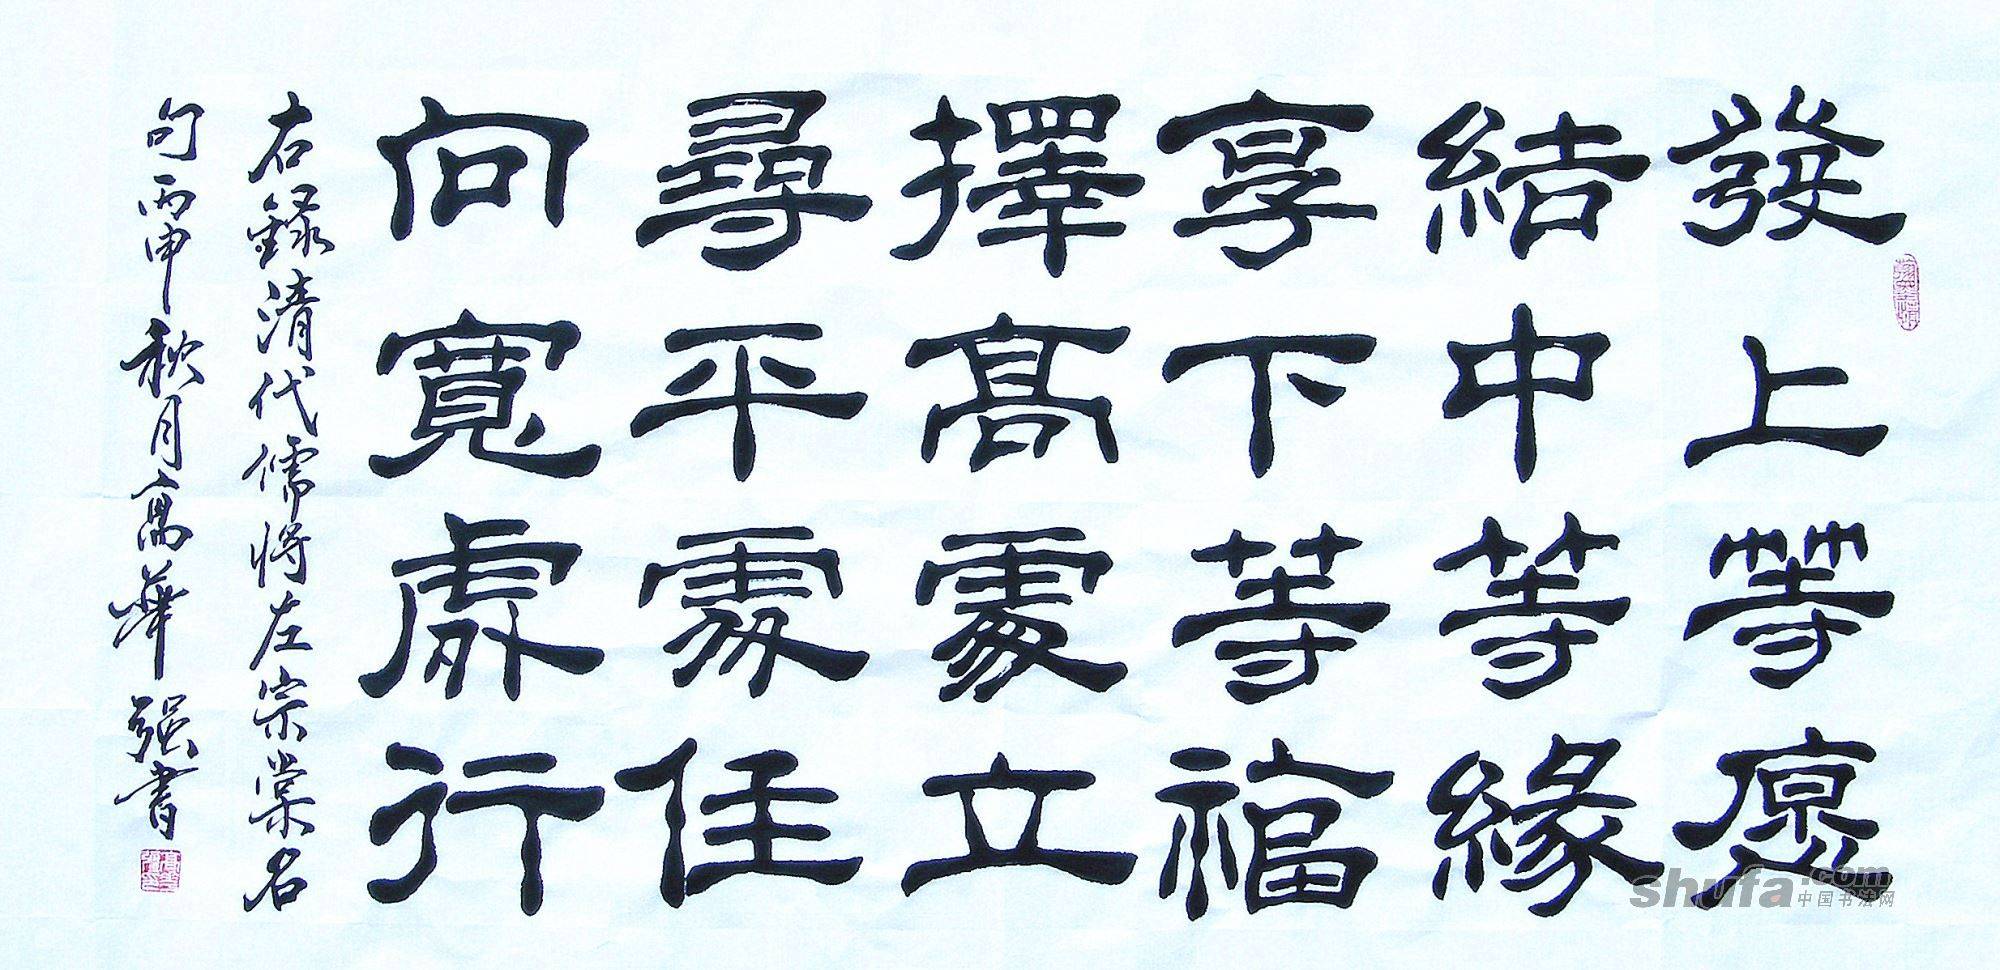 發上等愿
結中等緣
享下等福
擇高處立
尋平處住
向寬處行
右錄清代儒将左宗棠名
句丙申秋月高華强書
shufa.com
中国书法网